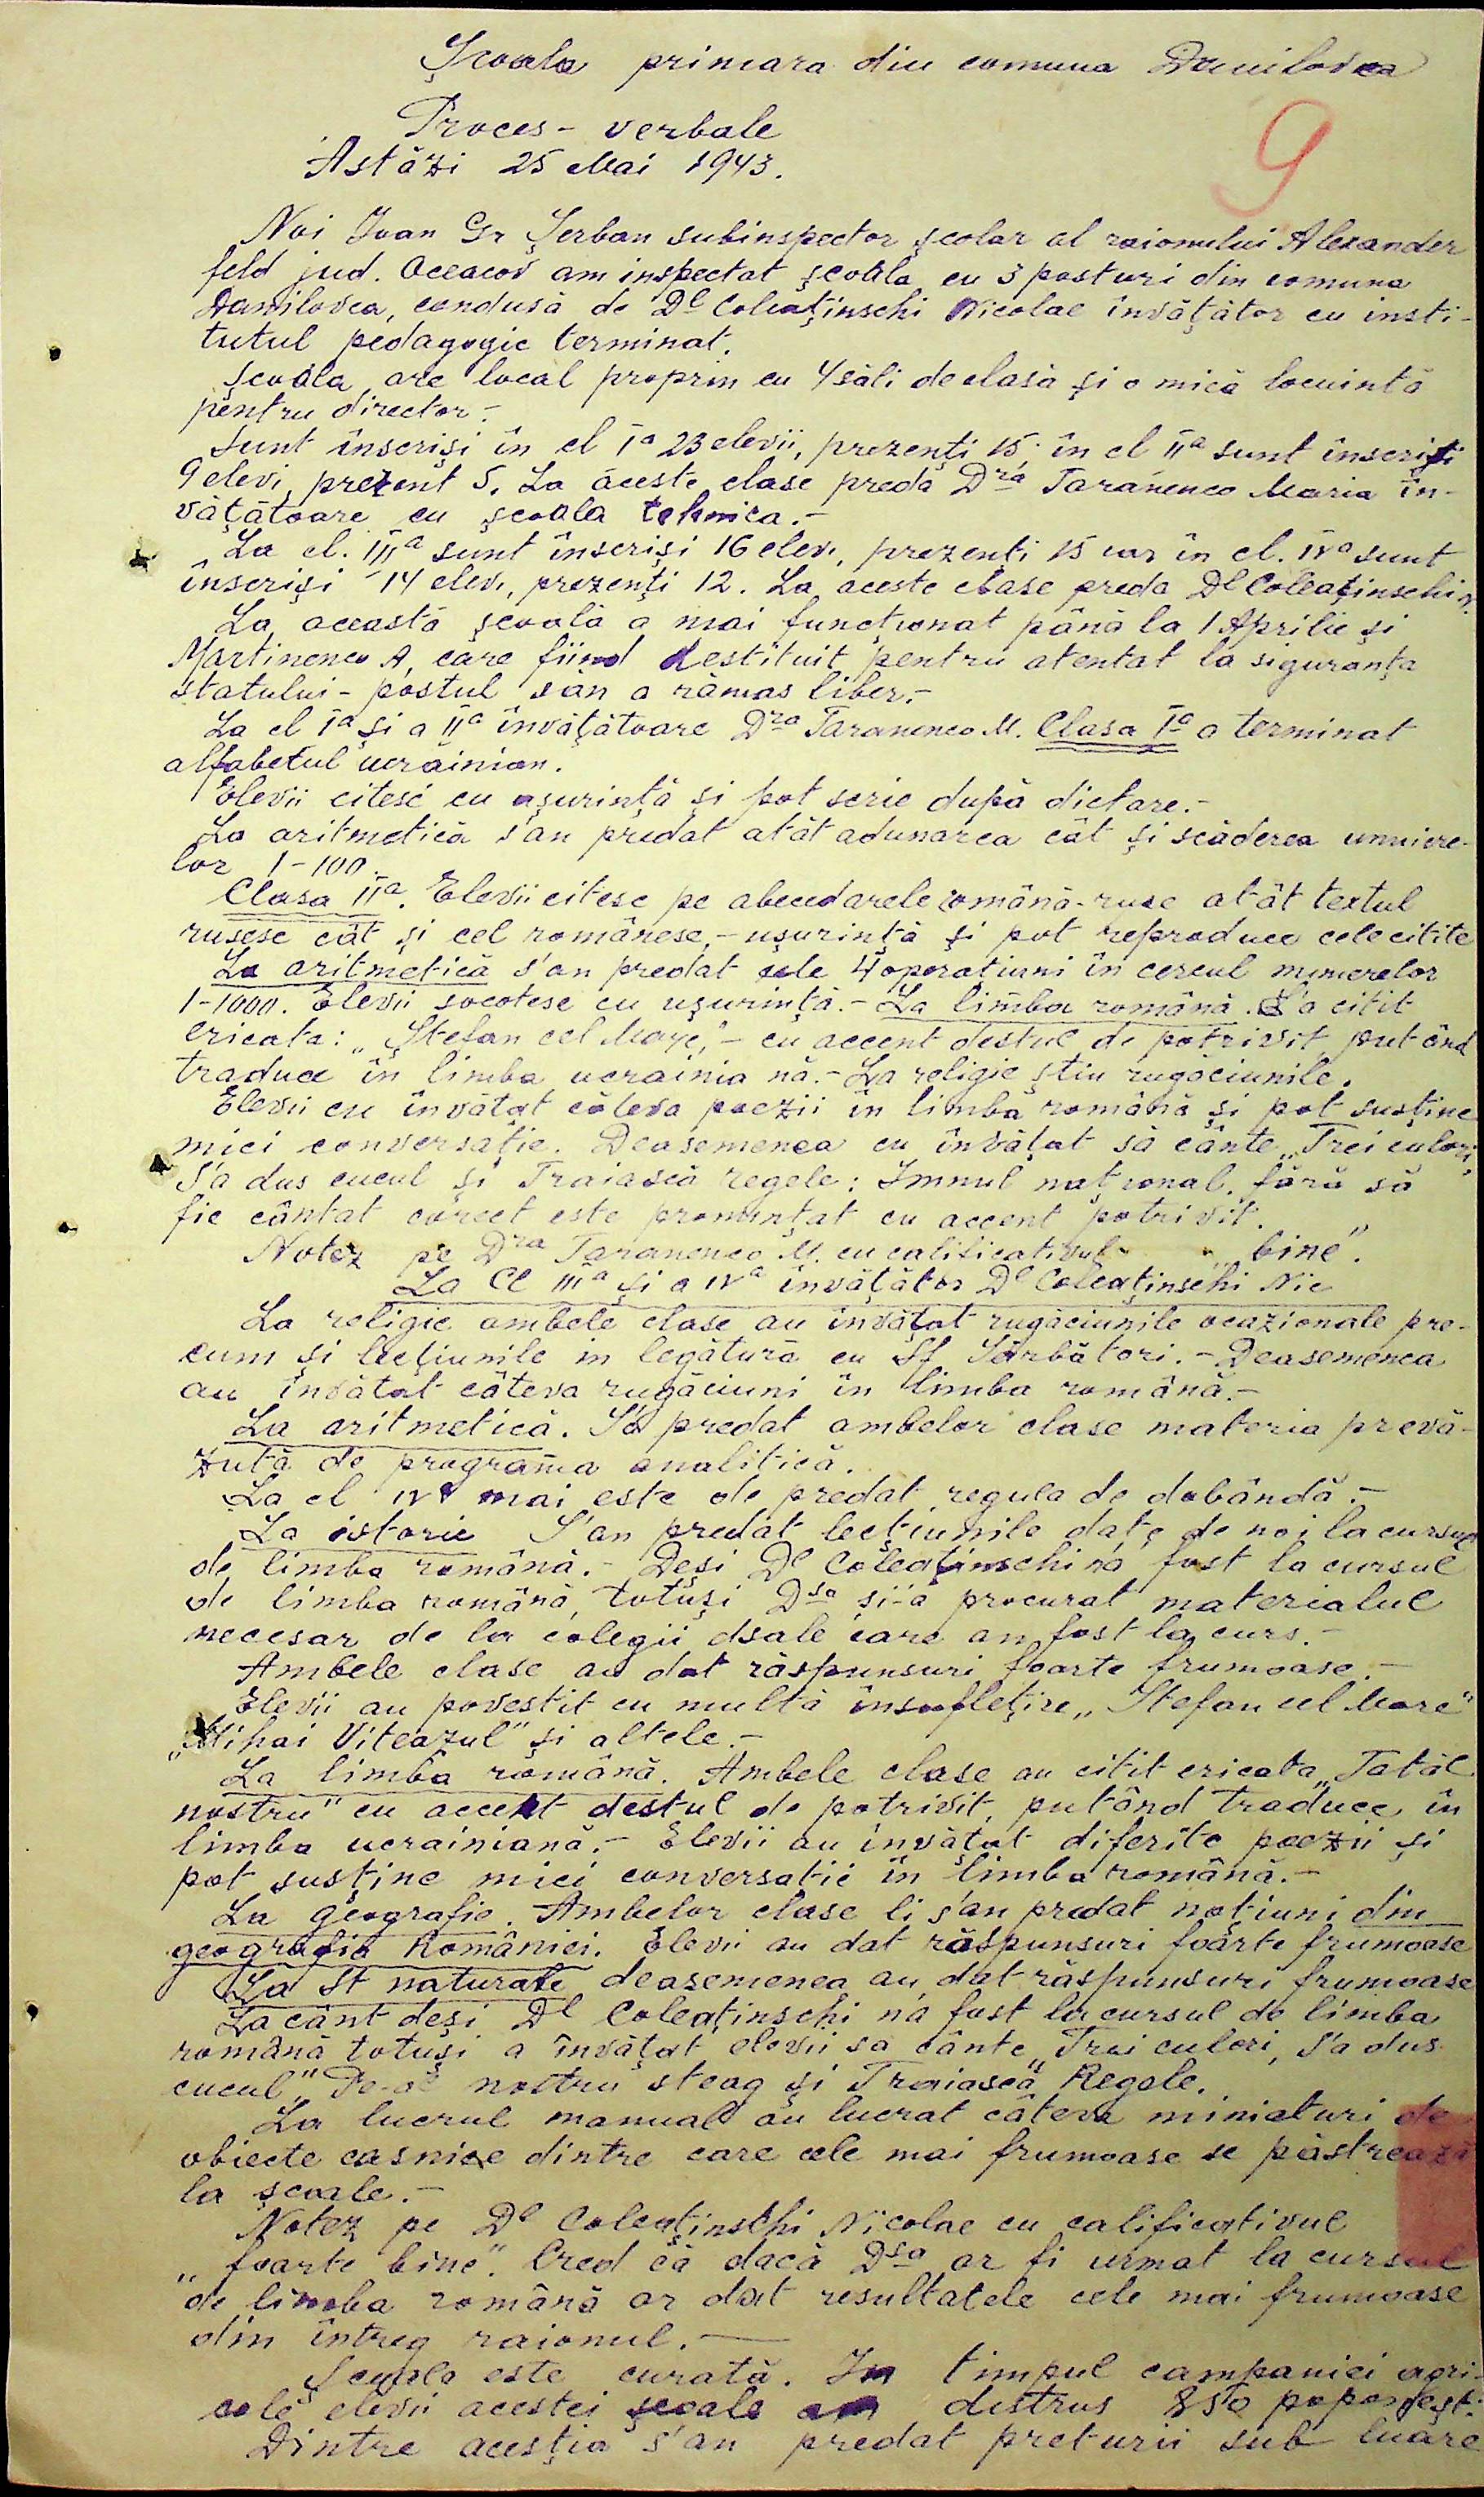 Școala primara din comuna Danilovca
9
Proces-verbale
Astăzi 25 Mai 1943.
Noi Ioan Gr Șerban subinspector școlar al raionului Alexander
feld jud. Oceacov am inspectat școala cu 3 posturi din comuna
Danilovca, condusă de Dl Coleatinschi Nicolae învățător cu insti-
tutul pedagogic terminat.
Școala are local propriu cu 4 săli de clasă și o mică locuință
pentru director.-
Sunt înscriși în cl Ia 23 elevii, prezenți 15; în cl IIa sunt înscriși
9 elevi, prezent 5. La aceste clase predă Dra Taranenco Maria în-
vățătoare cu școala tehnica.-
La cl. IIIa sunt înscriși 16 elevi, prezenți 15 iar în cl. IVa sunt
înscriși 14 elevi, prezenți 12. La aceste clase preda Dl Coleaținschi N.
La această școală a mai funcționat până la 1 Aprilie și
Martinenco A, care fiind destituit pentru atentat la siguranța
statului - postul său a rămas liber.-
La cl Ia și a IIa învățătoare Dra Taranenco M. Clasa Ia a terminat
alfabetul ucrainian.
Elevii citesc cu ușurință și pot scrie după dictare.-
La aritmetică s'au predat atât adunarea cât și scăderea numere-
lor 1-100.
Clasa IIa. Elevii citesc pe abecedarele română-ruse atât textul
rusesc cât și cel românesc,- ușurință și pot reproduce cele citite
La aritmetică s'au predat cele 4 operațiuni în cercul numerelor
1-1000. Elevii socotesc cu ușurință.- La limba română. S'a citit
bricata: „Ștefan cel Mare",- cu accent destul de potrivit putând
traduce în limba ucrainia nă.- La religie știu rugăciunile.
Elevii eu învățat câteva poezii în limba română și pot susține
mici conversație. Deasemenea eu învățat să cânte „Trei culori,
S'a dus cucul și Traiască regele: Imnul național. fără să
fie cântat corect este pronunțat cu accent potrivit.
Notez pe Dra Taranenco M. cu calificativul „bine".
La Cl IIIa și a IVa învățător Dl Coleaținschi Nic
La religie ambele clase au învățat rugăciunile ocazionale pre-
cum și lecțiunile in legătură cu Sf Sărbători.- Deasemenea
au învățat câteva rugăciuni în limba română.-
La aritmetică. S'a predat ambelor clase materia prevă-
zută de programa analitică.
La cl IVa mai este de predat regula de dobândă.-
La istorie S'au predat lecțiunile date de noi la cursul
de limba română.- Deși Dl Coleaținschi n'a fost la cursul
de limba română, totuși Dsa și-a procurat materialul
necesar de la colegii dsale care au fost la curs.-
Ambele clase au dat răspunsuri foarte frumoase.-
Elevii au povestit cu multă însuflețire „Stefan cel Mare"
„Mihai Viteazul" și altele.-
La limba română. Ambele clase au citit ericata „Tatăl
nostru" cu accent destul de potrivit, putând traduce în
limba ucrainiană.- Elevii au învățat diferite poezii și
pot susține mici conversatie în limba română.-
La geografie. Ambelor clase li s'au predat noțiuni din
geografia României. Elevii au dat răspunsuri foarte frumoase
La St naturale deasemenea au dat răspunsuri frumoase
La cânt deși Dl Coleaținschi n'a fost la cursul de limba
română totuși a învățat elevii sa cânte „Trei culori, S'a dus
cucul", Pe-al nostru steag și Traiască Regele.
La lucrul manual au lucrat câteva miniaturi de
obiecte casnice dintre care cele mai frumoase se păstrează
la școale.-
Notez pe Dl Coleaținschi Nicolae cu calificativul
„foarte bine". Cred că dacă Dsa ar fi urmat la cursul
de limba română ar dat resultatele cele mai frumoase
din întreg raionul.-
Școala este curată. In timpul campaniei agri-
cole elevii acestei școale au distrus 850 popondești.
Dintre aceștia s'au predat preturii sub luare